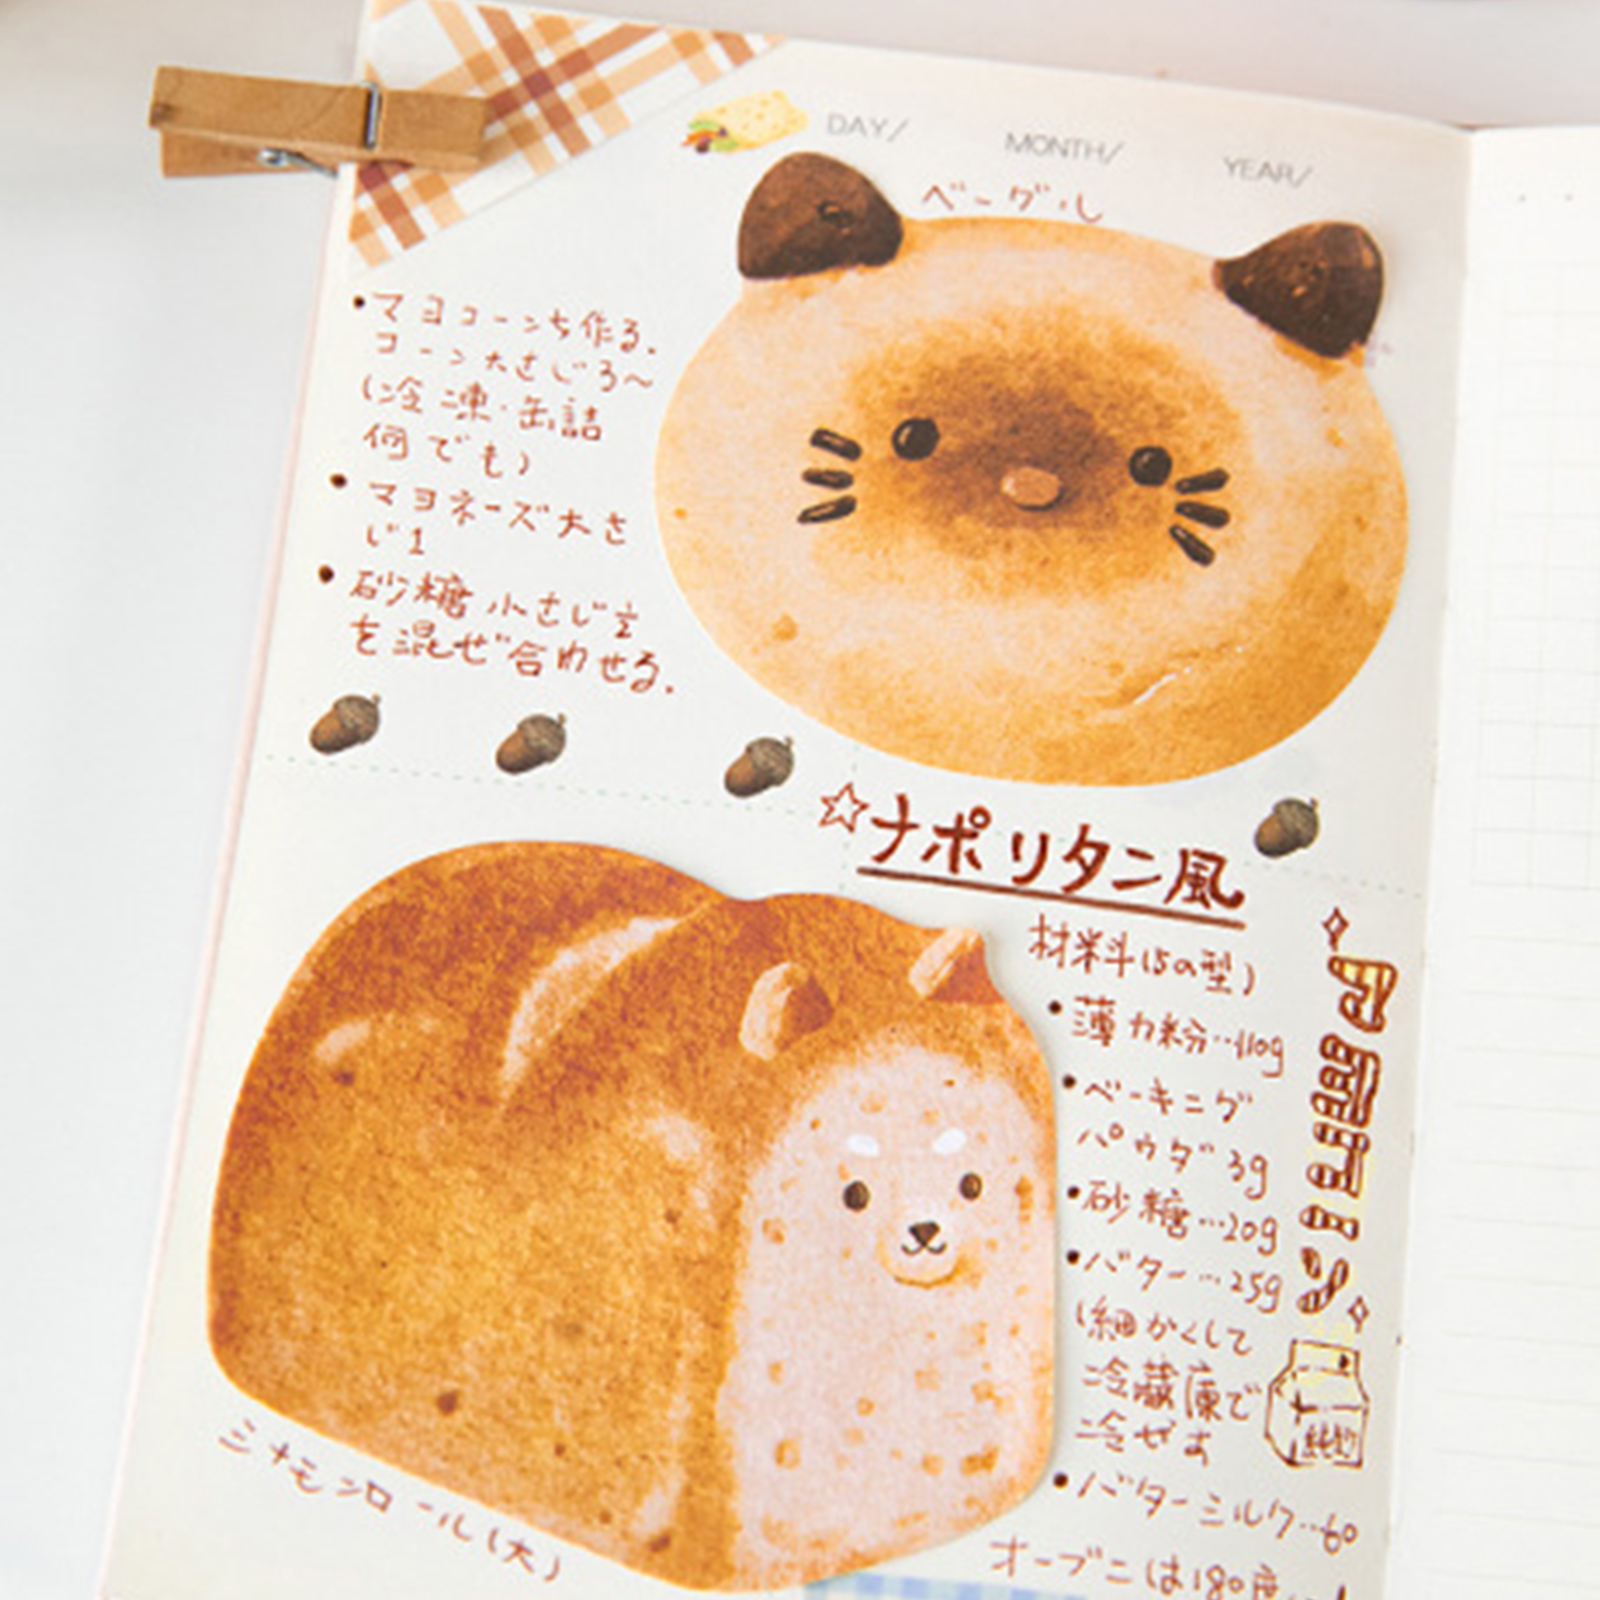 DAY/ MONTH/ YEAR/
ベーグル
・マヨコーンを作る.
コーン大さじ3〜
(冷凍・缶詰
何でも)
・マヨネーズ大さ
じ1
・砂糖 小さじ½
を混ぜ合わせる.
☆ナポリタン風
材料(5の型)
・薄力粉…110g
・ベーキング
パウダ 3g
・砂糖…20g
・バター…25g
(細かくして
冷蔵庫で
冷やす
・バターミルク…60
オーブンは180度
シナモンロール(大)